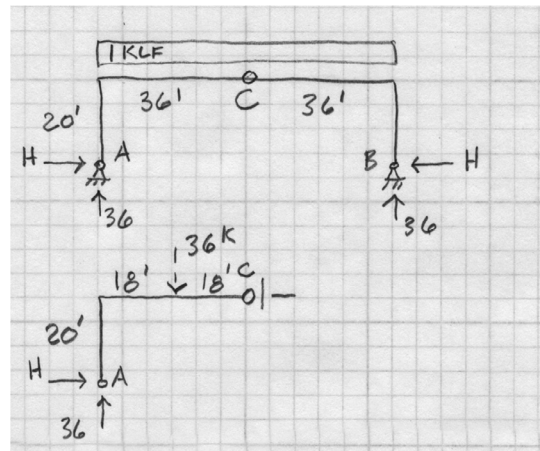 1 KLF
36' C 36'
20'
H A B H
36 36
36K
18' 18' C
20'
H A
36